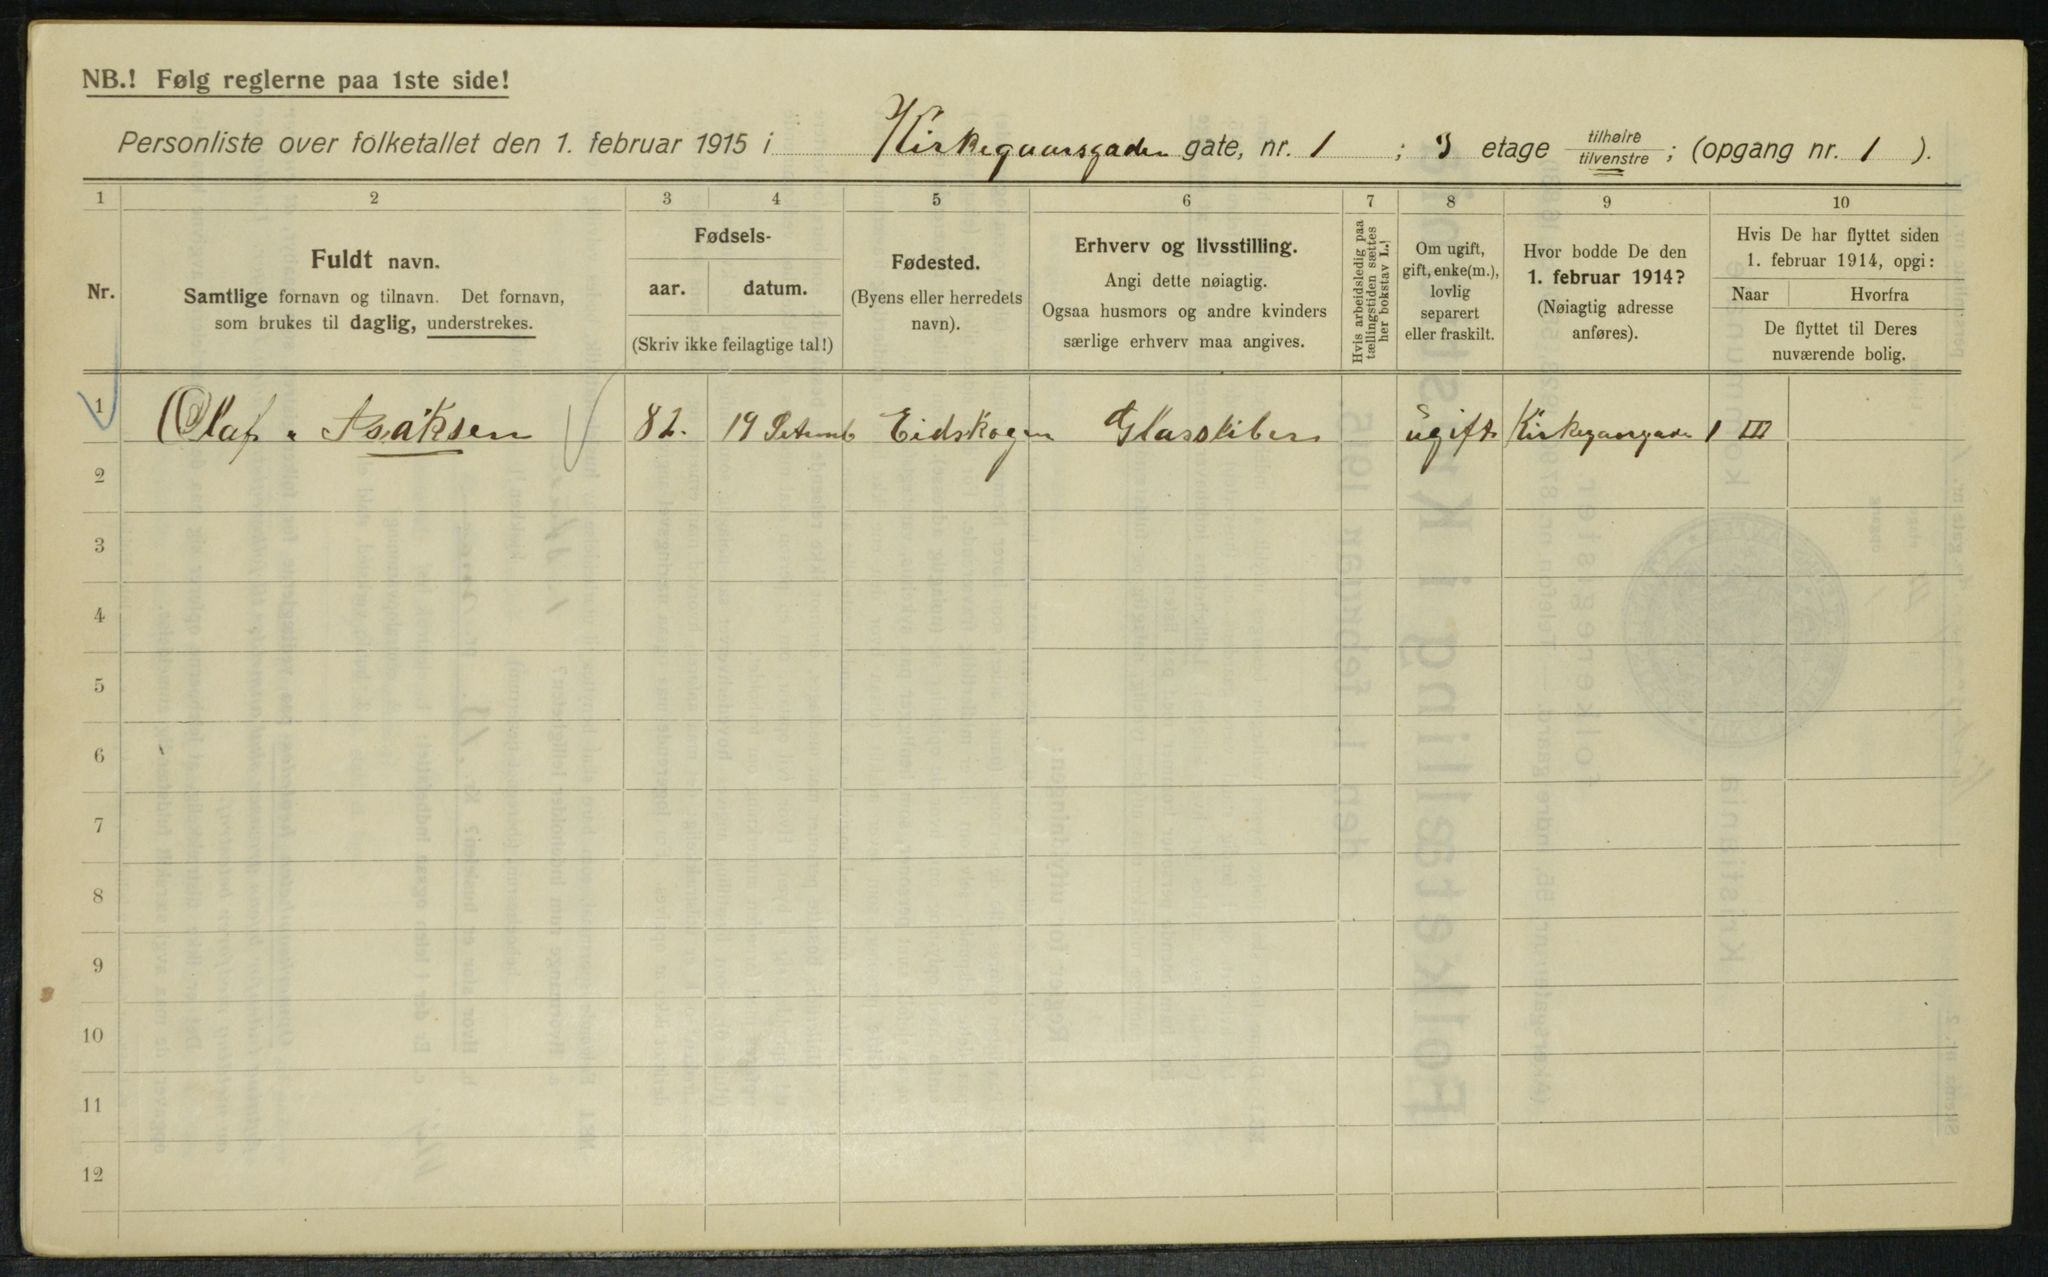 NB.! Følg reglerne paa 1ste side!
Personliste over folketallet den 1. februar 1915 i Kirkegaarsgaden gate, nr. 1 ; 3 etage tilhøire tilvenstre ; (opgang nr. 1 ).
1 2 3 4 5 6 7 8 9 10
Nr.
Fuldt navn.
Samtlige fornavn og tilnavn. Det fornavn,
som brukes til daglig, understrekes.
Fødsels-
aar. datum.
(Skriv ikke feilagtige tal!)
Fødested.
(Byens eller herredets
navn).
Erhverv og livsstilling.
Angi dette nøiagtig.
Ogsaa husmors og andre kvinders
særlige erhverv maa angives.
Hvis arbeidsledig paa
tællingstiden sættes
her bokstav L.!
Om ugift,
gift, enke(m.),
lovlig
separert
eller fraskilt.
Hvor bodde De den
1. februar 1914?
(Nøiagtig adresse
anføres).
Hvis De har flyttet siden
1. februar 1914, opgi:
Naar Hvorfra
De flyttet til Deres
nuværende bolig.
1 Olaf Isaksen 82. 19 Setemb Eidskogen Glassliber ugift Kirkegaargade 1 III
2
3
4
5
6
7
8
9
10
11
12